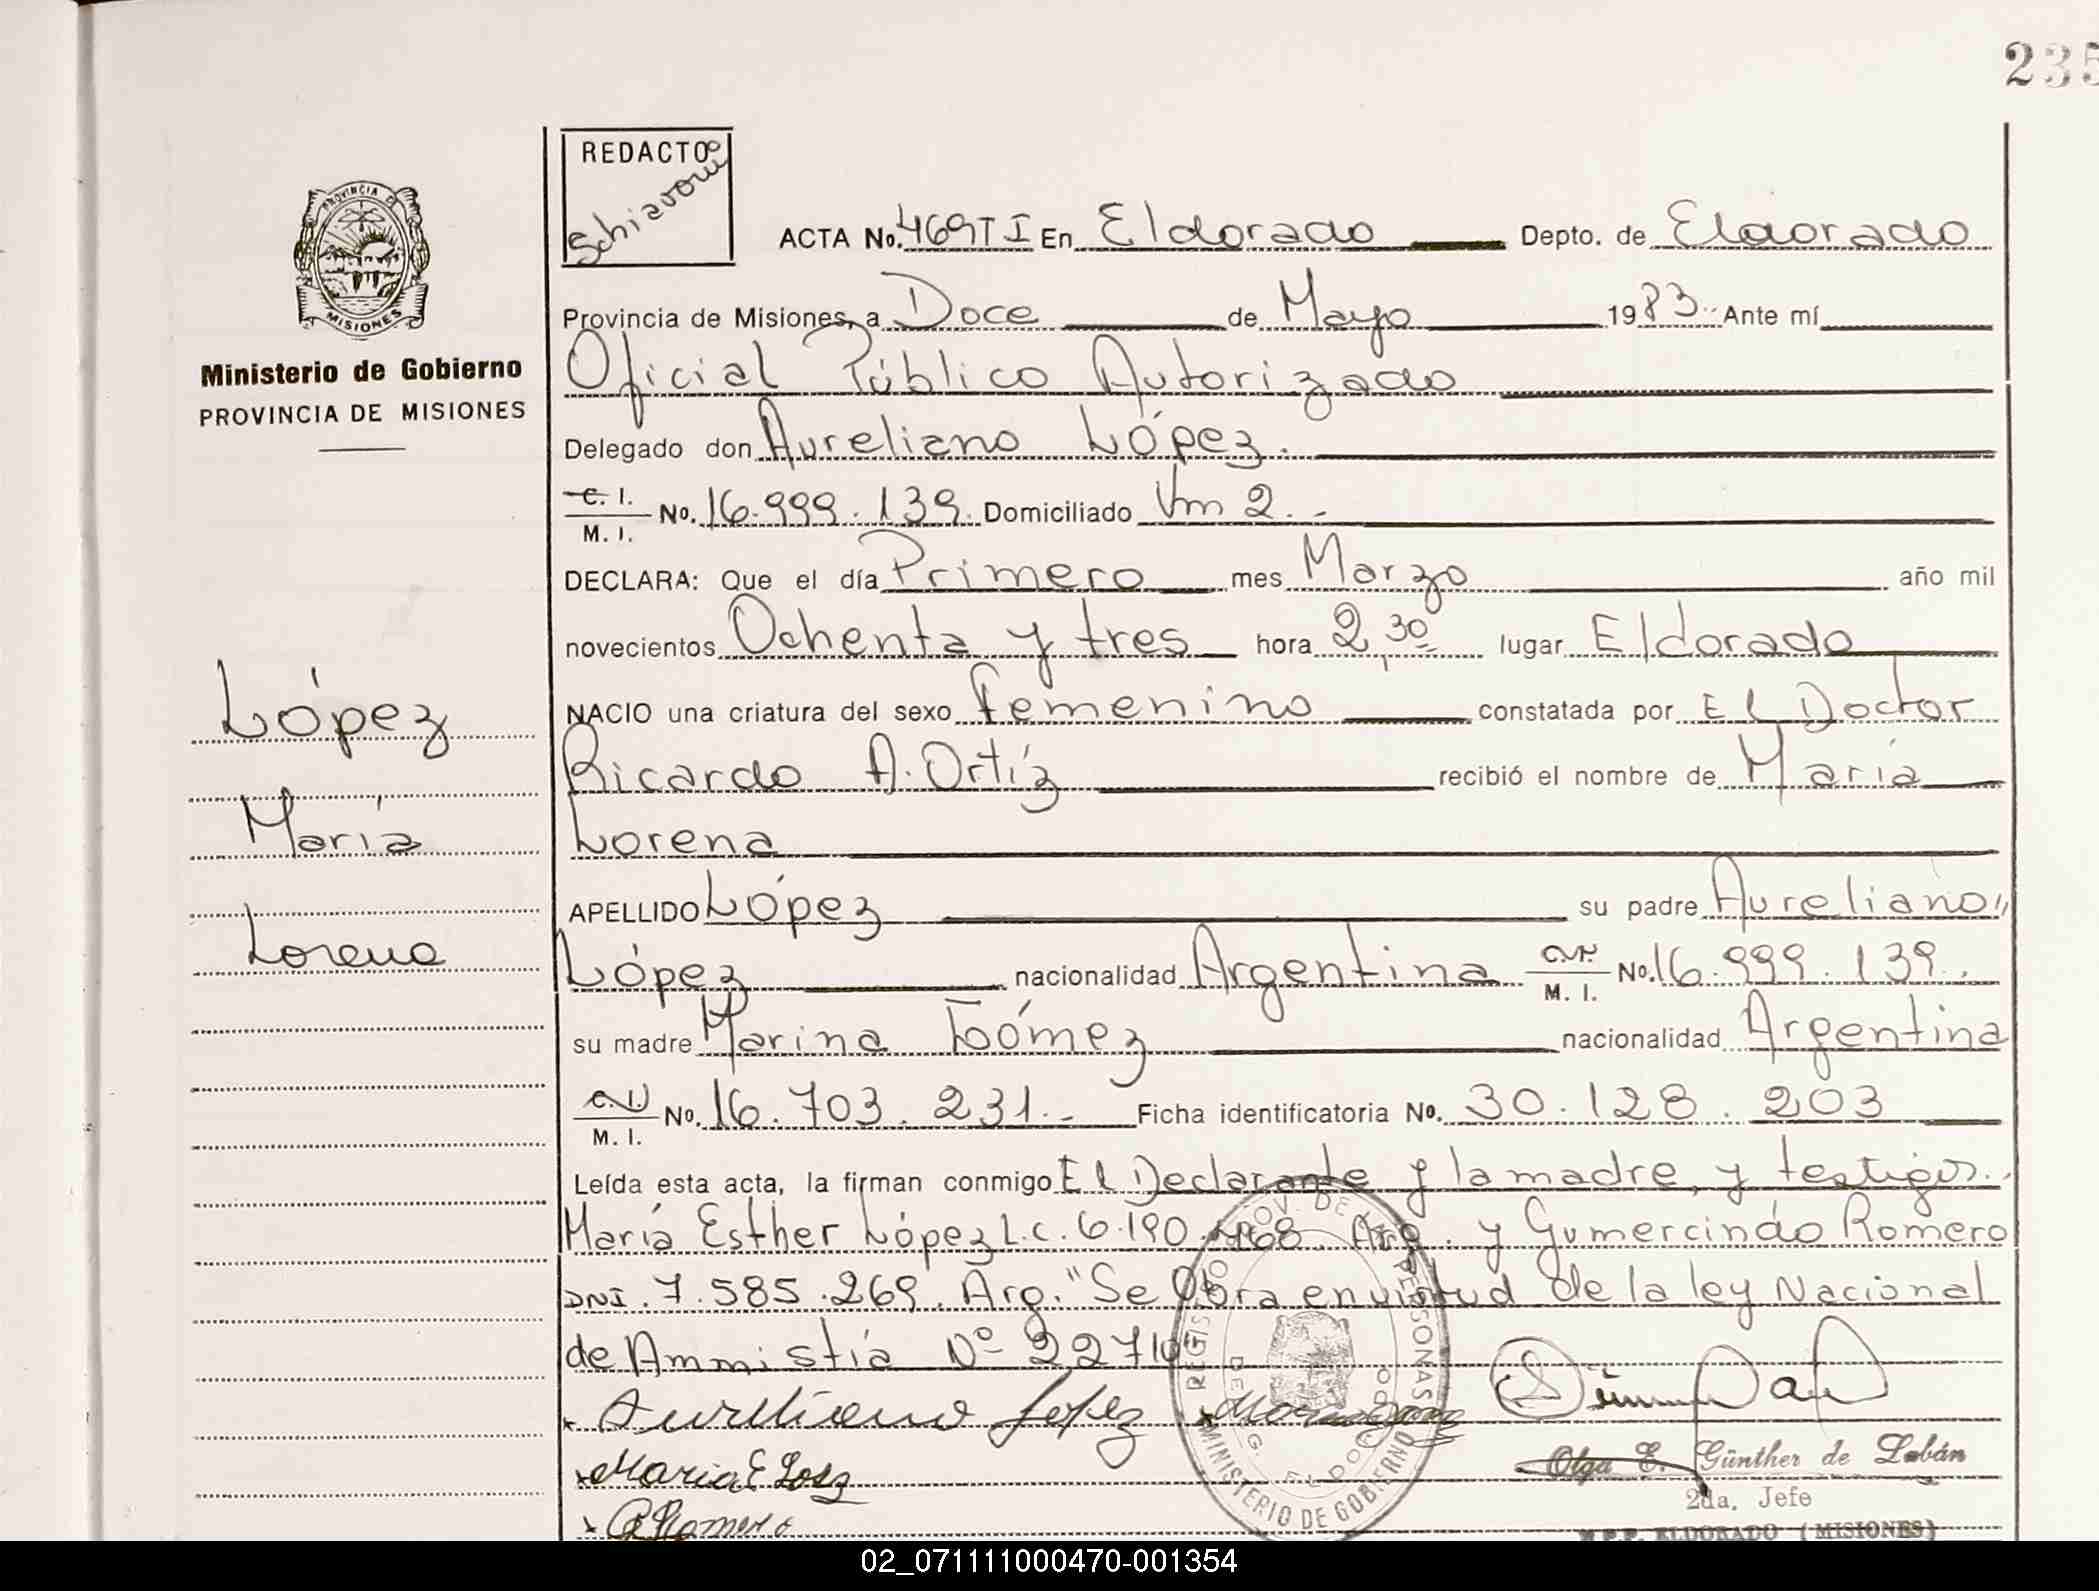 235
REDACTO
Schiavoni
PROVINCIA DE
MISIONES
Ministerio de Gobierno
PROVINCIA DE MISIONES
López
María
Lorena
ACTA No. 469TI En Eldorado Depto. de Eldorado
Provincia de Misiones, a Doce de Mayo 1983.- Ante mí
Oficial Público Autorizado
Delegado don Aureliano López.
C. I.
M. I. No. 16.999.139. Domiciliado Km 2.-
DECLARA: Que el día Primero mes Marzo año mil
novecientos Ochenta y tres hora 2,30 lugar Eldorado
NACIO una criatura del sexo femenino constatada por El Doctor
Ricardo A. Ortíz recibió el nombre de María
Lorena
APELLIDO López su padre Aureliano
López nacionalidad Argentina C.I.
M. I. No. 16.999.139.
su madre Marina Gómez nacionalidad Argentina
C.I.
M. I. No. 16.703.231.- Ficha identificatoria No. 30.128.203
Leída esta acta, la firman conmigo El Declarante y la madre, y testigos.
María Esther López L.C. 6.190.468. Arg. y Gumercindo Romero
DNI. 7.585.269. Arg. "Se Obra en virtud de la ley Nacional
de Ammistía Nº 22710
Aureliano Lopez
Maria E Lopez
G Romero
Olga E. Günther de Labán
2da. Jefe
ELDORADO (MISIONES)
MINISTERIO DE GOBIERNO
02_071111000470-001354